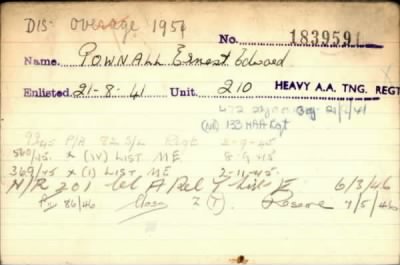 DIS- Overage 1956
No. 1839591
Name. POWNALL Ernest Edward
Enlisted 21-8-41 Unit. 210 HEAVY A.A. TNG. REGT
133 HAA Rgt
P/A 82 S/L Regt 2-9-45
560/45. x (IV) LIST ME 8-9-45
369/45 x (I) LIST ME 2-11-45
N/R 201 A Rel List E 6/3/46
86/46 Class Z (T) Reserve 7/5/46